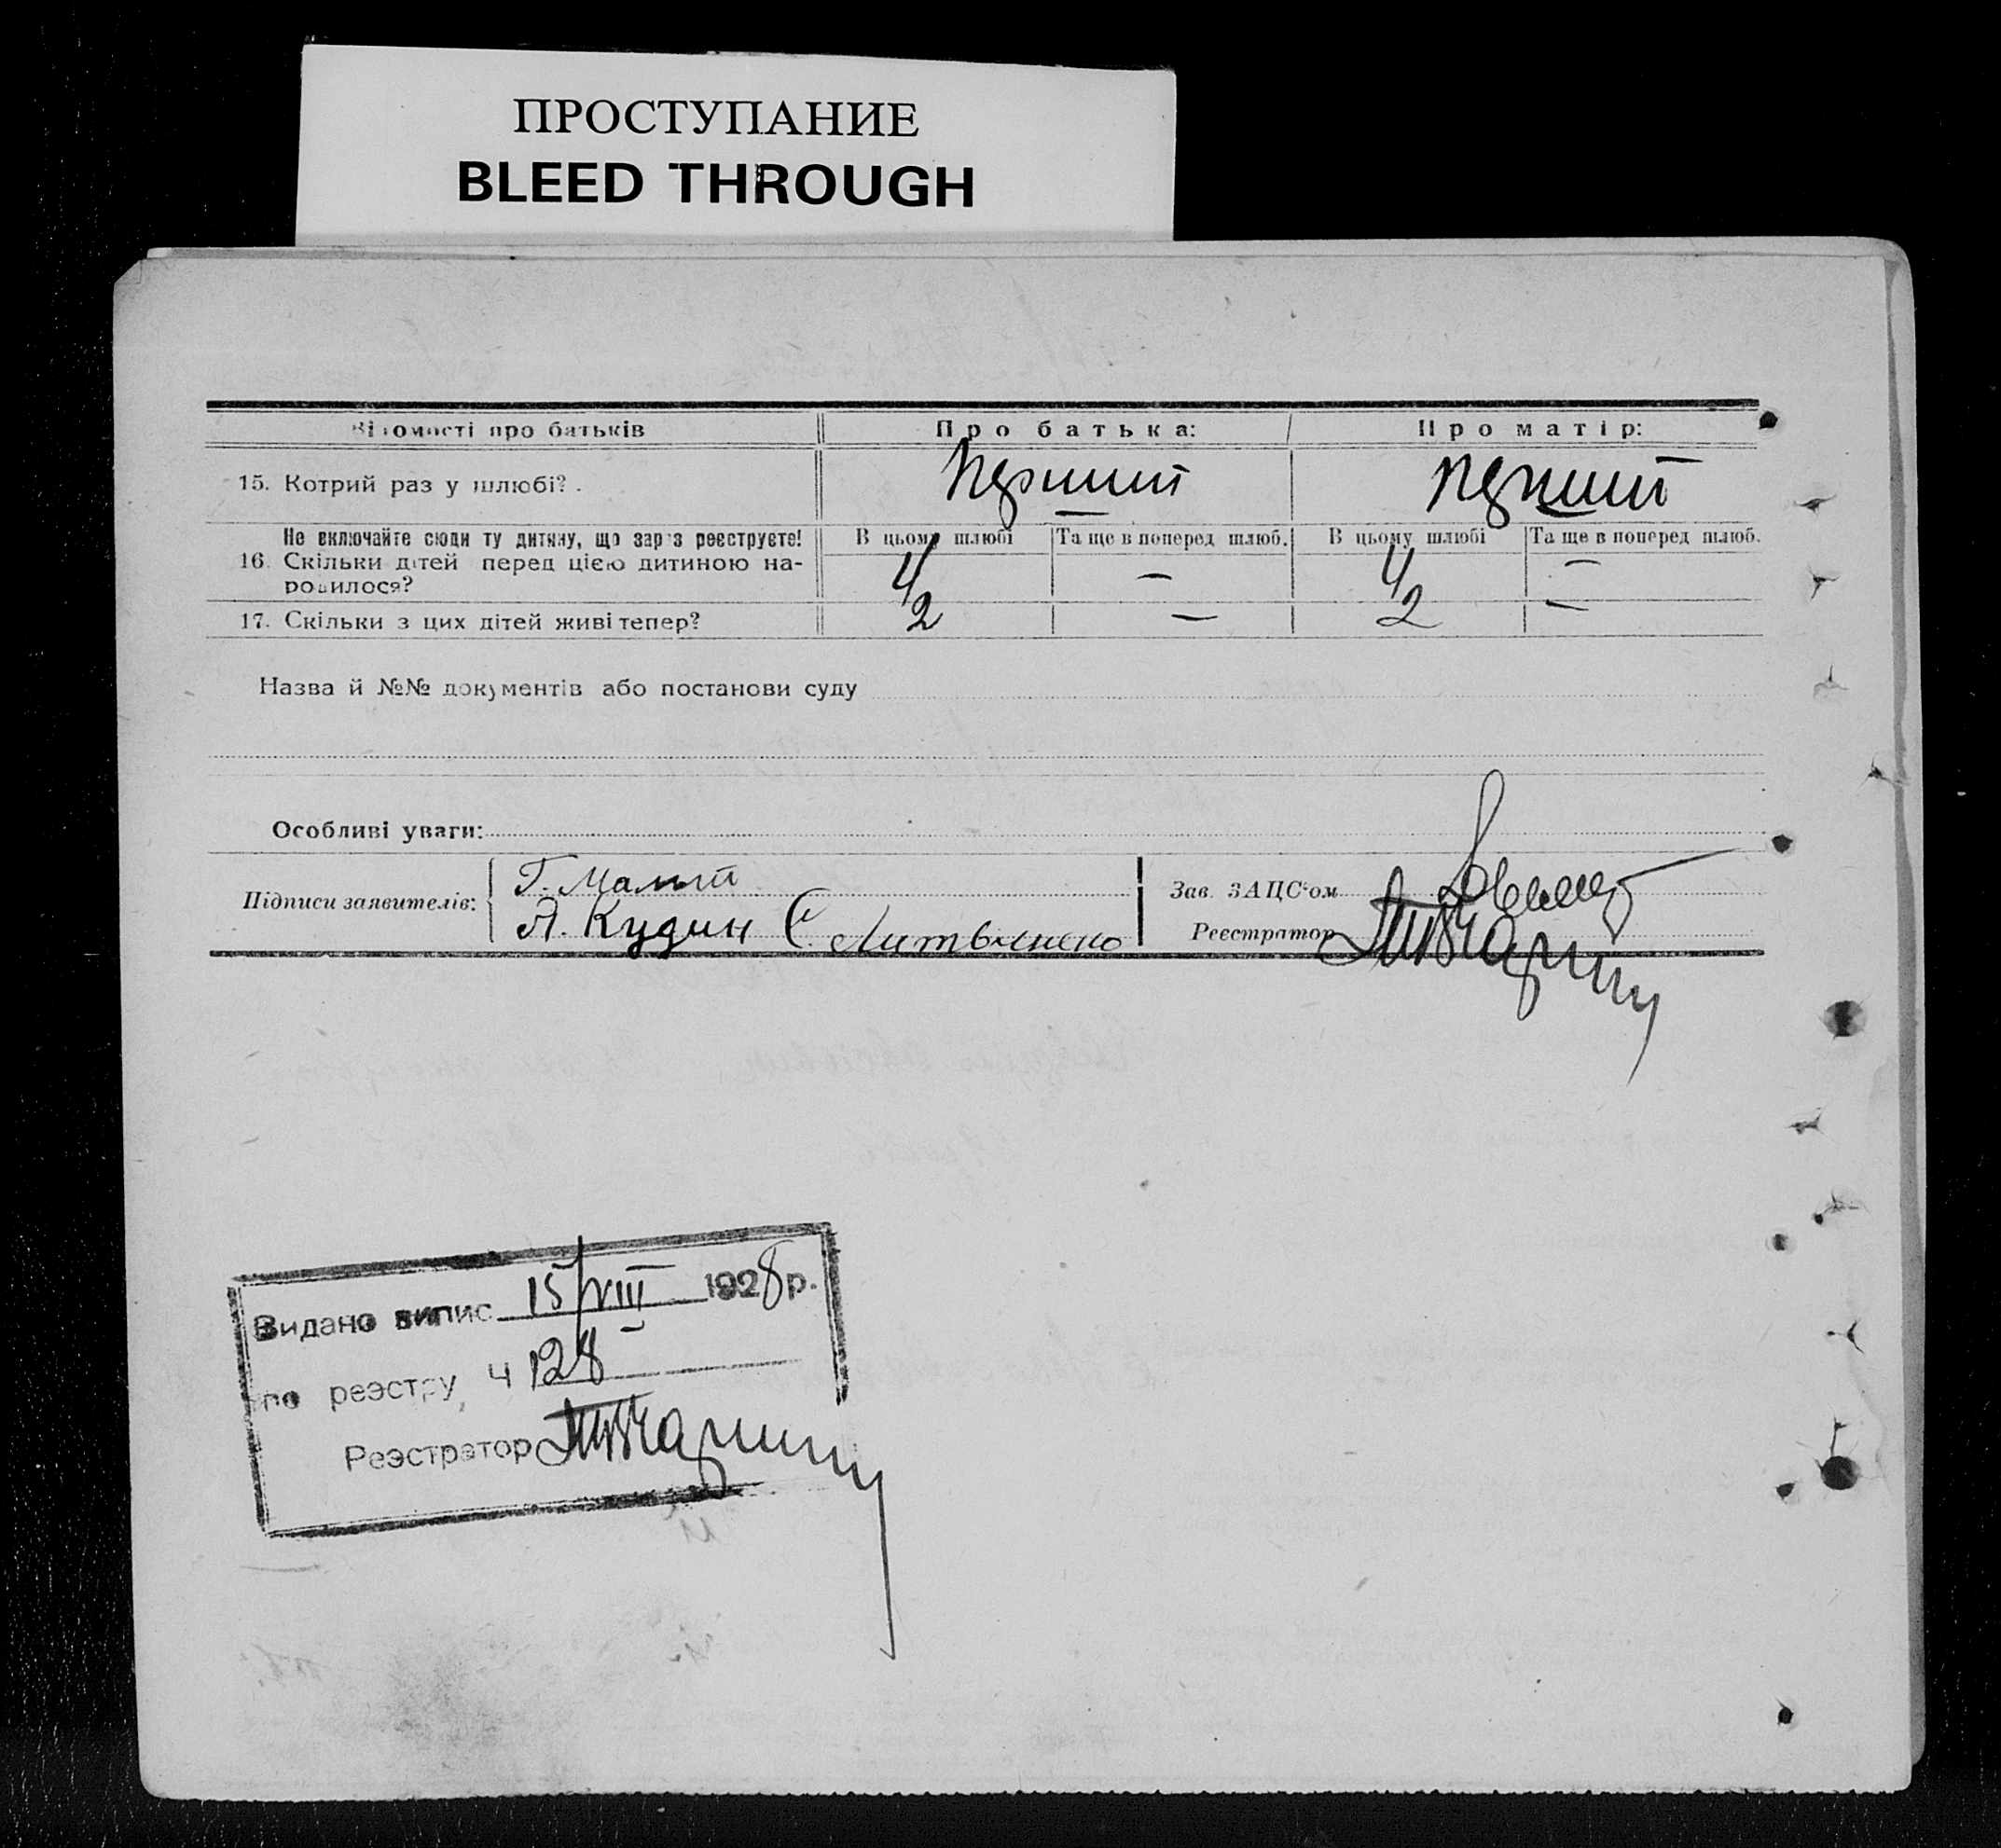 ПРОСТУПАНИЕ
BLEED THROUGH
Відомості про батьків Про батька: Про матір:
15. Котрий раз у шлюбі? Перший Перший
Не включайте сюди ту дитину, що зараз реєструєте! В цьому шлюбі Та ще в поперед шлюб. В цьому шлюбі Та ще в поперед шлюб.
16. Скільки дітей перед цією дитиною на- 4 — 4 —
родилося?
17. Скільки з цих дітей живі тепер? 2 — 2 —
Назва й №№ документів або постанови суду
Особливі уваги:
Підписи заявителів: Г. Малий
А. Кудин Є Литвиненко
Зав. ЗАЦС'ом
Реєстратор
Видано випис 15/VIII 1928 р.
по реэстру, Ч 128
Реэстратор